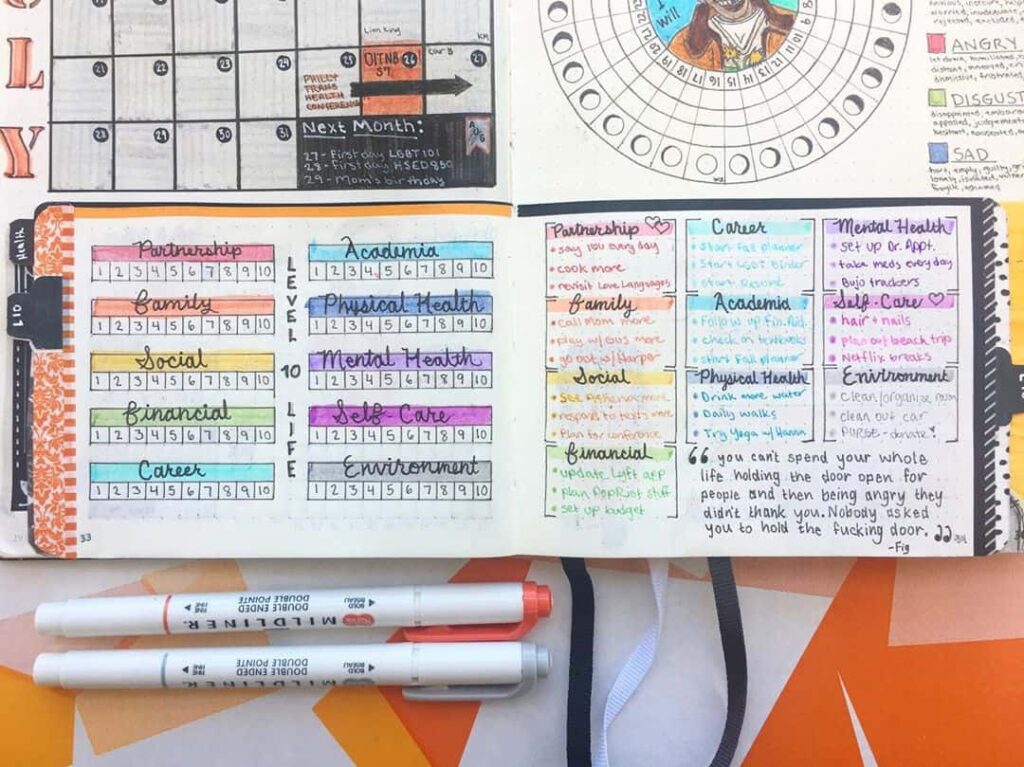 L
Y
Lion King
21
22
23
24
25
OITNB
S7.
26
27
PHILLY
TRANS
HEALTH
CONFERENCE
28
29
30
31
Next Month:
AUG
27 - First day LGBT 101
28 - First day HSED 850
29 - Mom's birthday
I
Will
22 21 20 19 18 17 16 15 14 13 12 11 10
ANGRY
DISGUST
SAD
Health
L10
Partnership
1 2 3 4 5 6 7 8 9 10
Family
1 2 3 4 5 6 7 8 9 10
Social
1 2 3 4 5 6 7 8 9 10
Financial
1 2 3 4 5 6 7 8 9 10
Career
1 2 3 4 5 6 7 8 9 10
LEVEL
10
LIFE
Academia
1 2 3 4 5 6 7 8 9 10
Physical Health
1 2 3 4 5 6 7 8 9 10
Mental Health
1 2 3 4 5 6 7 8 9 10
Self-Care
1 2 3 4 5 6 7 8 9 10
Environment
1 2 3 4 5 6 7 8 9 10
33
Partnership
say you every day
cook more
revisit Love Languages
Career
Start Fall planner
Start LGBT Binder
Start Resume
Mental Health
set up Dr. Appt.
take meds every day
Bujo trackers
Family
call mom more
play w/ cus more
go out w/ Harper
Academia
Follow up Fin. Aid.
check on textbooks
start Fall planner
Self-Care
hair + nails
plan out beach trip
Netflix breaks
Social
respond to texts more
Plan for conference
Physical Health
Drink more water
Daily walks
Try Yoga w/ Hanna
Environment
Clean/organize room
clean out car
PURGE - donate!
Financial
update Lyft app
plan PopRiot stuff
set up budget
“ you can't spend your whole
life holding the door open for
people and then being angry they
didn't thank you. Nobody asked
you to hold the fucking door. ”
-Fig
BOLD
BISEAU
MILDLINER
DOUBLE ENDED
DOUBLE POINTE
FINE
FINE
BOLD
BISEAU
MILDLINER
DOUBLE ENDED
DOUBLE POINTE
FINE
FINE